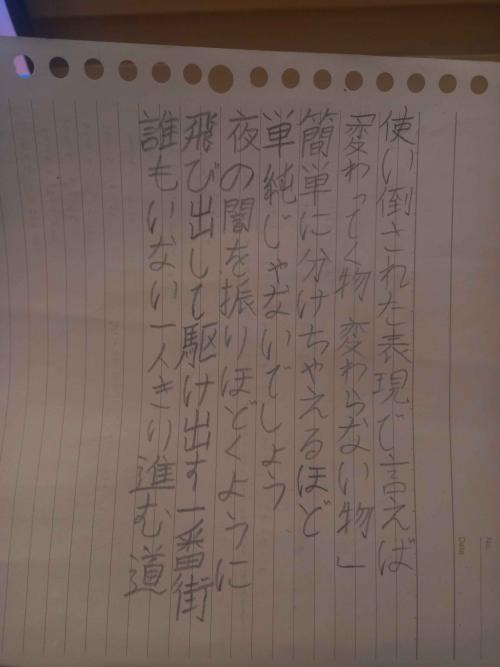 使い倒された表現で言えば
「変わってく物 変わらない物」
簡単に分けちゃえるほど
単純じゃないでしょう
夜の闇を振りほどくように
飛び出して駆け出す一番街
誰もいない一人きり進む道
No.
Date